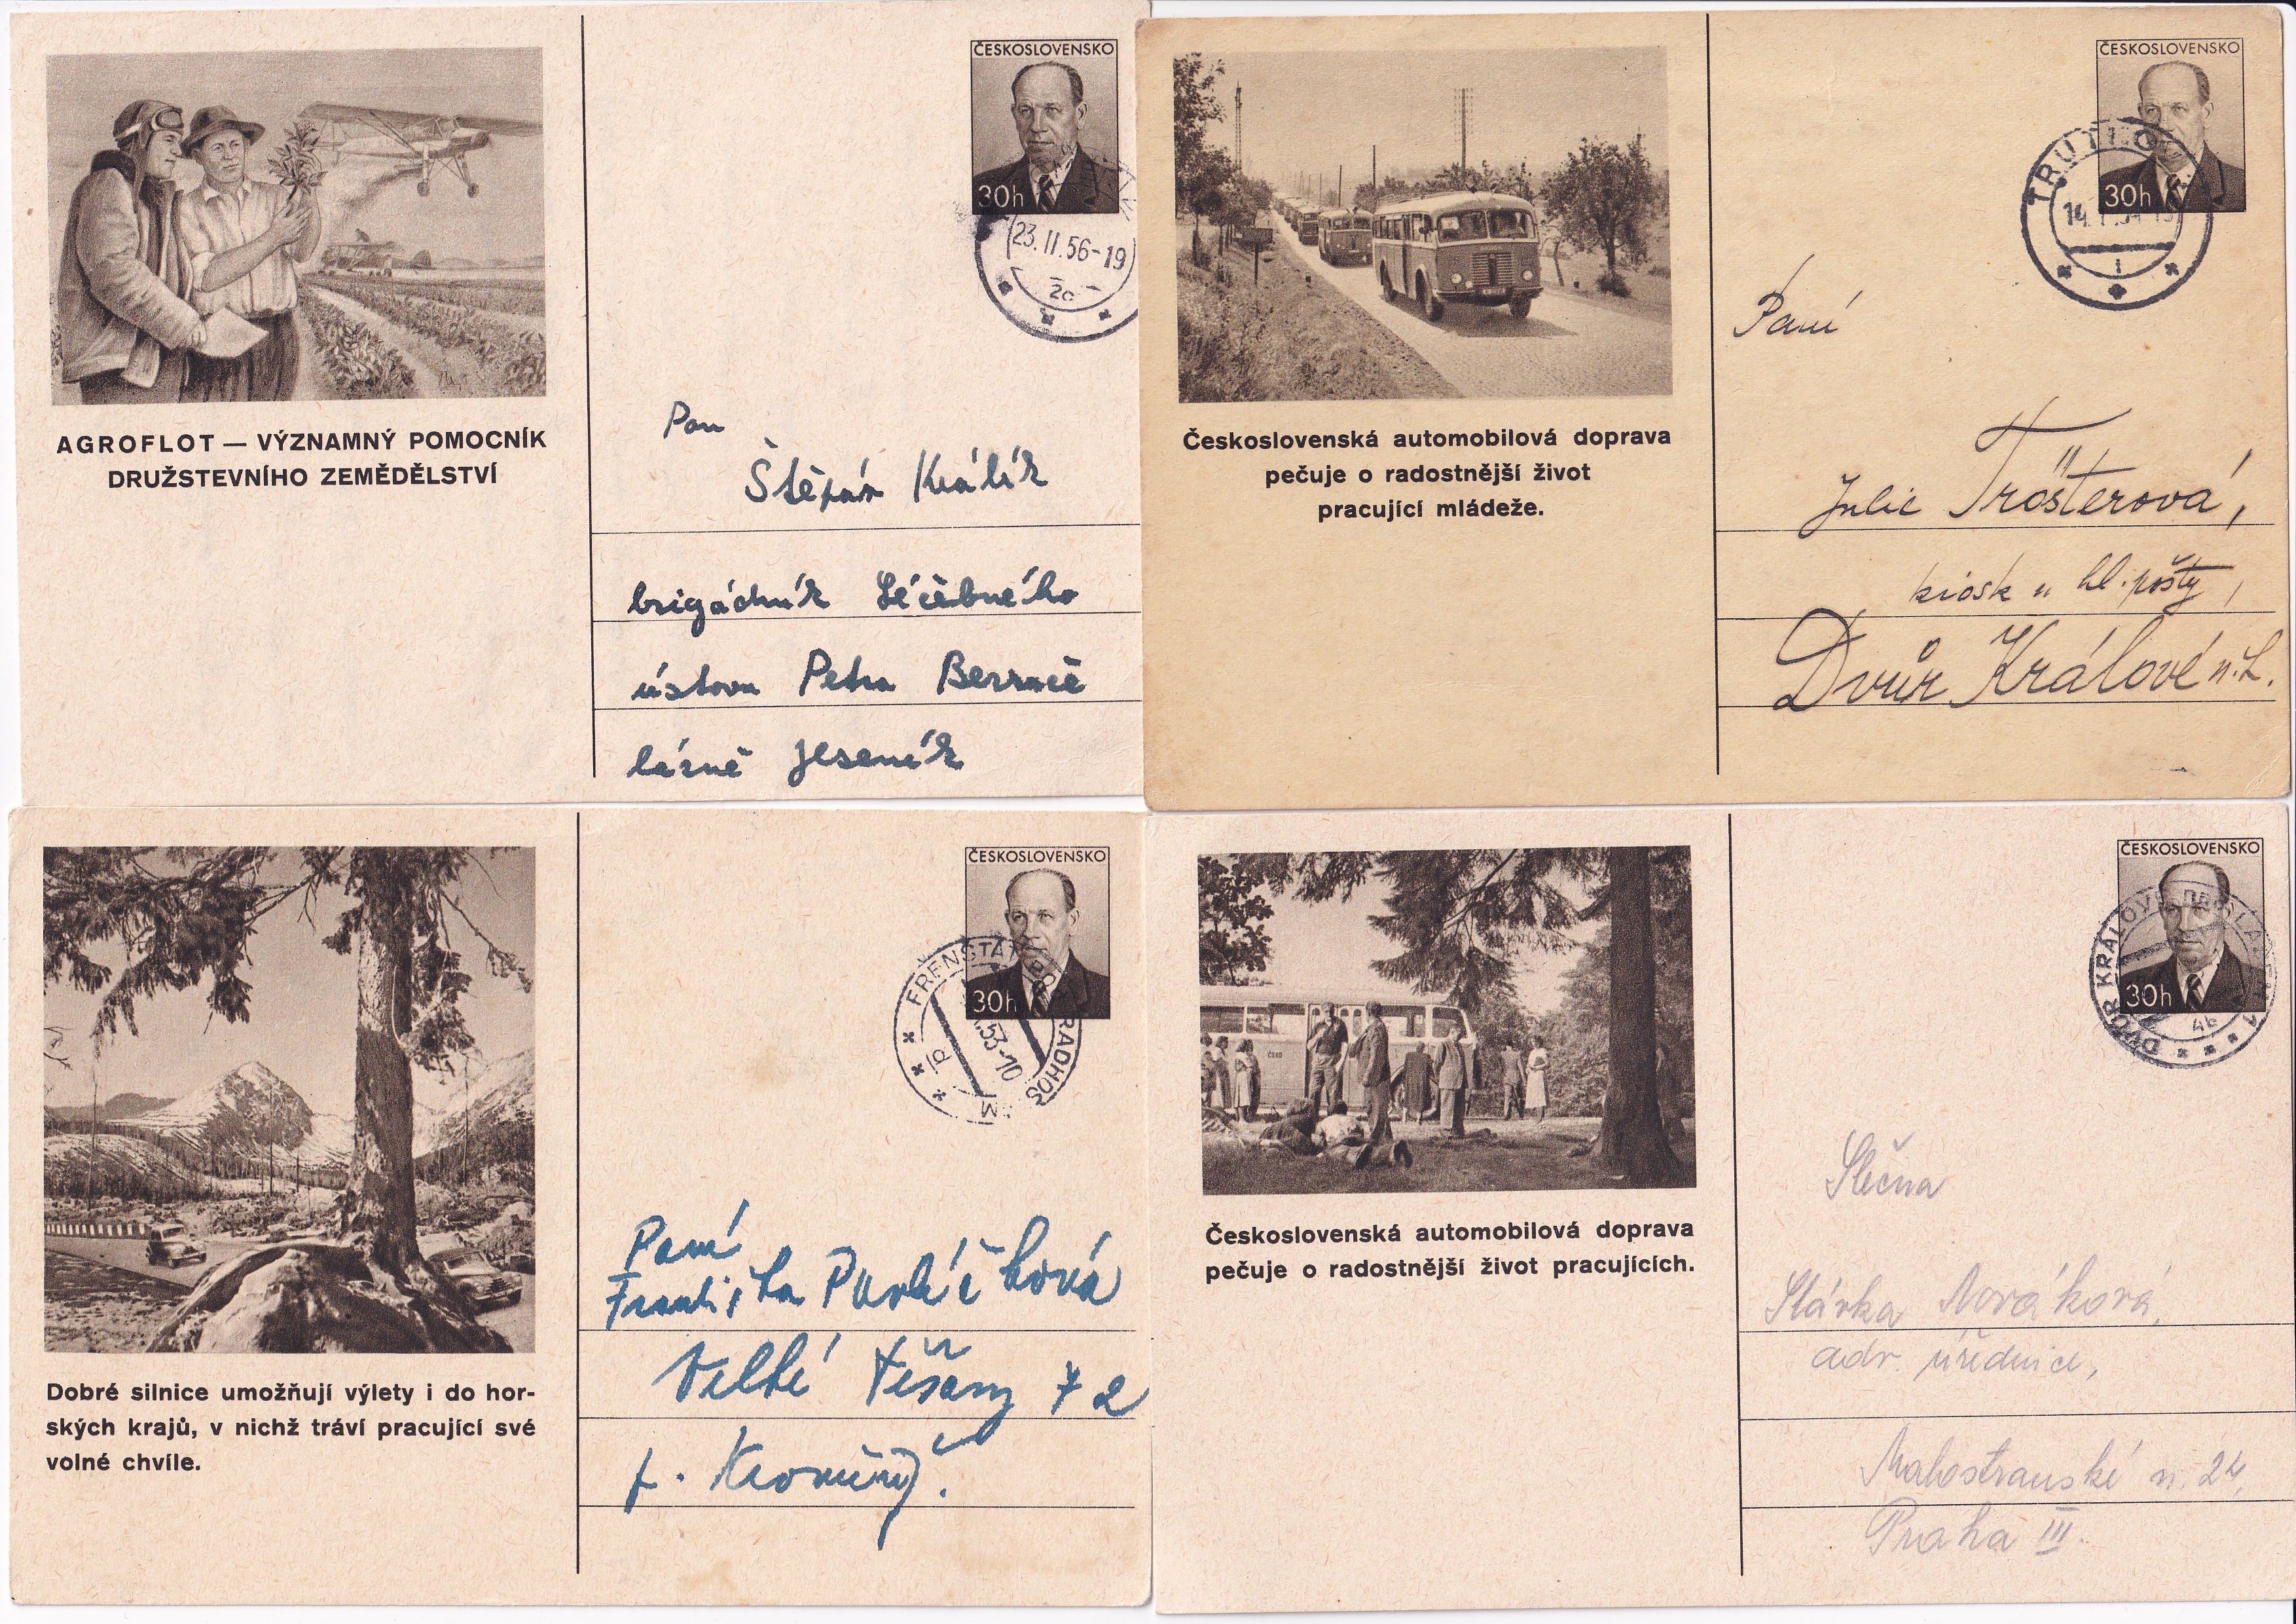 ČESKOSLOVENSKO
30h
23.II.56-19
2c
AGROFLOT — VÝZNAMNÝ POMOCNÍK
DRUŽSTEVNÍHO ZEMĚDĚLSTVÍ
Pan
Štěpán Králík
brigádník Léčebného
ústavu Petra Bezruče
lázně Jeseník
ČESKOSLOVENSKO
30h
TRUTNOV
1
Československá automobilová doprava
pečuje o radostnější život
pracující mládeže.
Paní
Julie Trösterová,
kiosk u hl. pošty,
Dvůr Králové n. L.
ČESKOSLOVENSKO
30h
FRENŠTÁT POD RADHOŠ
53-10
Dobré silnice umožňují výlety i do hor-
ských krajů, v nichž tráví pracující své
volné chvíle.
Paní
Františka Pavlíčková
Velké Těšany 72
p. Kroměříž.
ČESKOSLOVENSKO
30h
DVŮR KRÁLOVÉ
4b
ČSAD
Československá automobilová doprava
pečuje o radostnější život pracujících.
Slečna
Slávka Nováková,
adv. úřednice,
Malostranské n. 24,
Praha III.